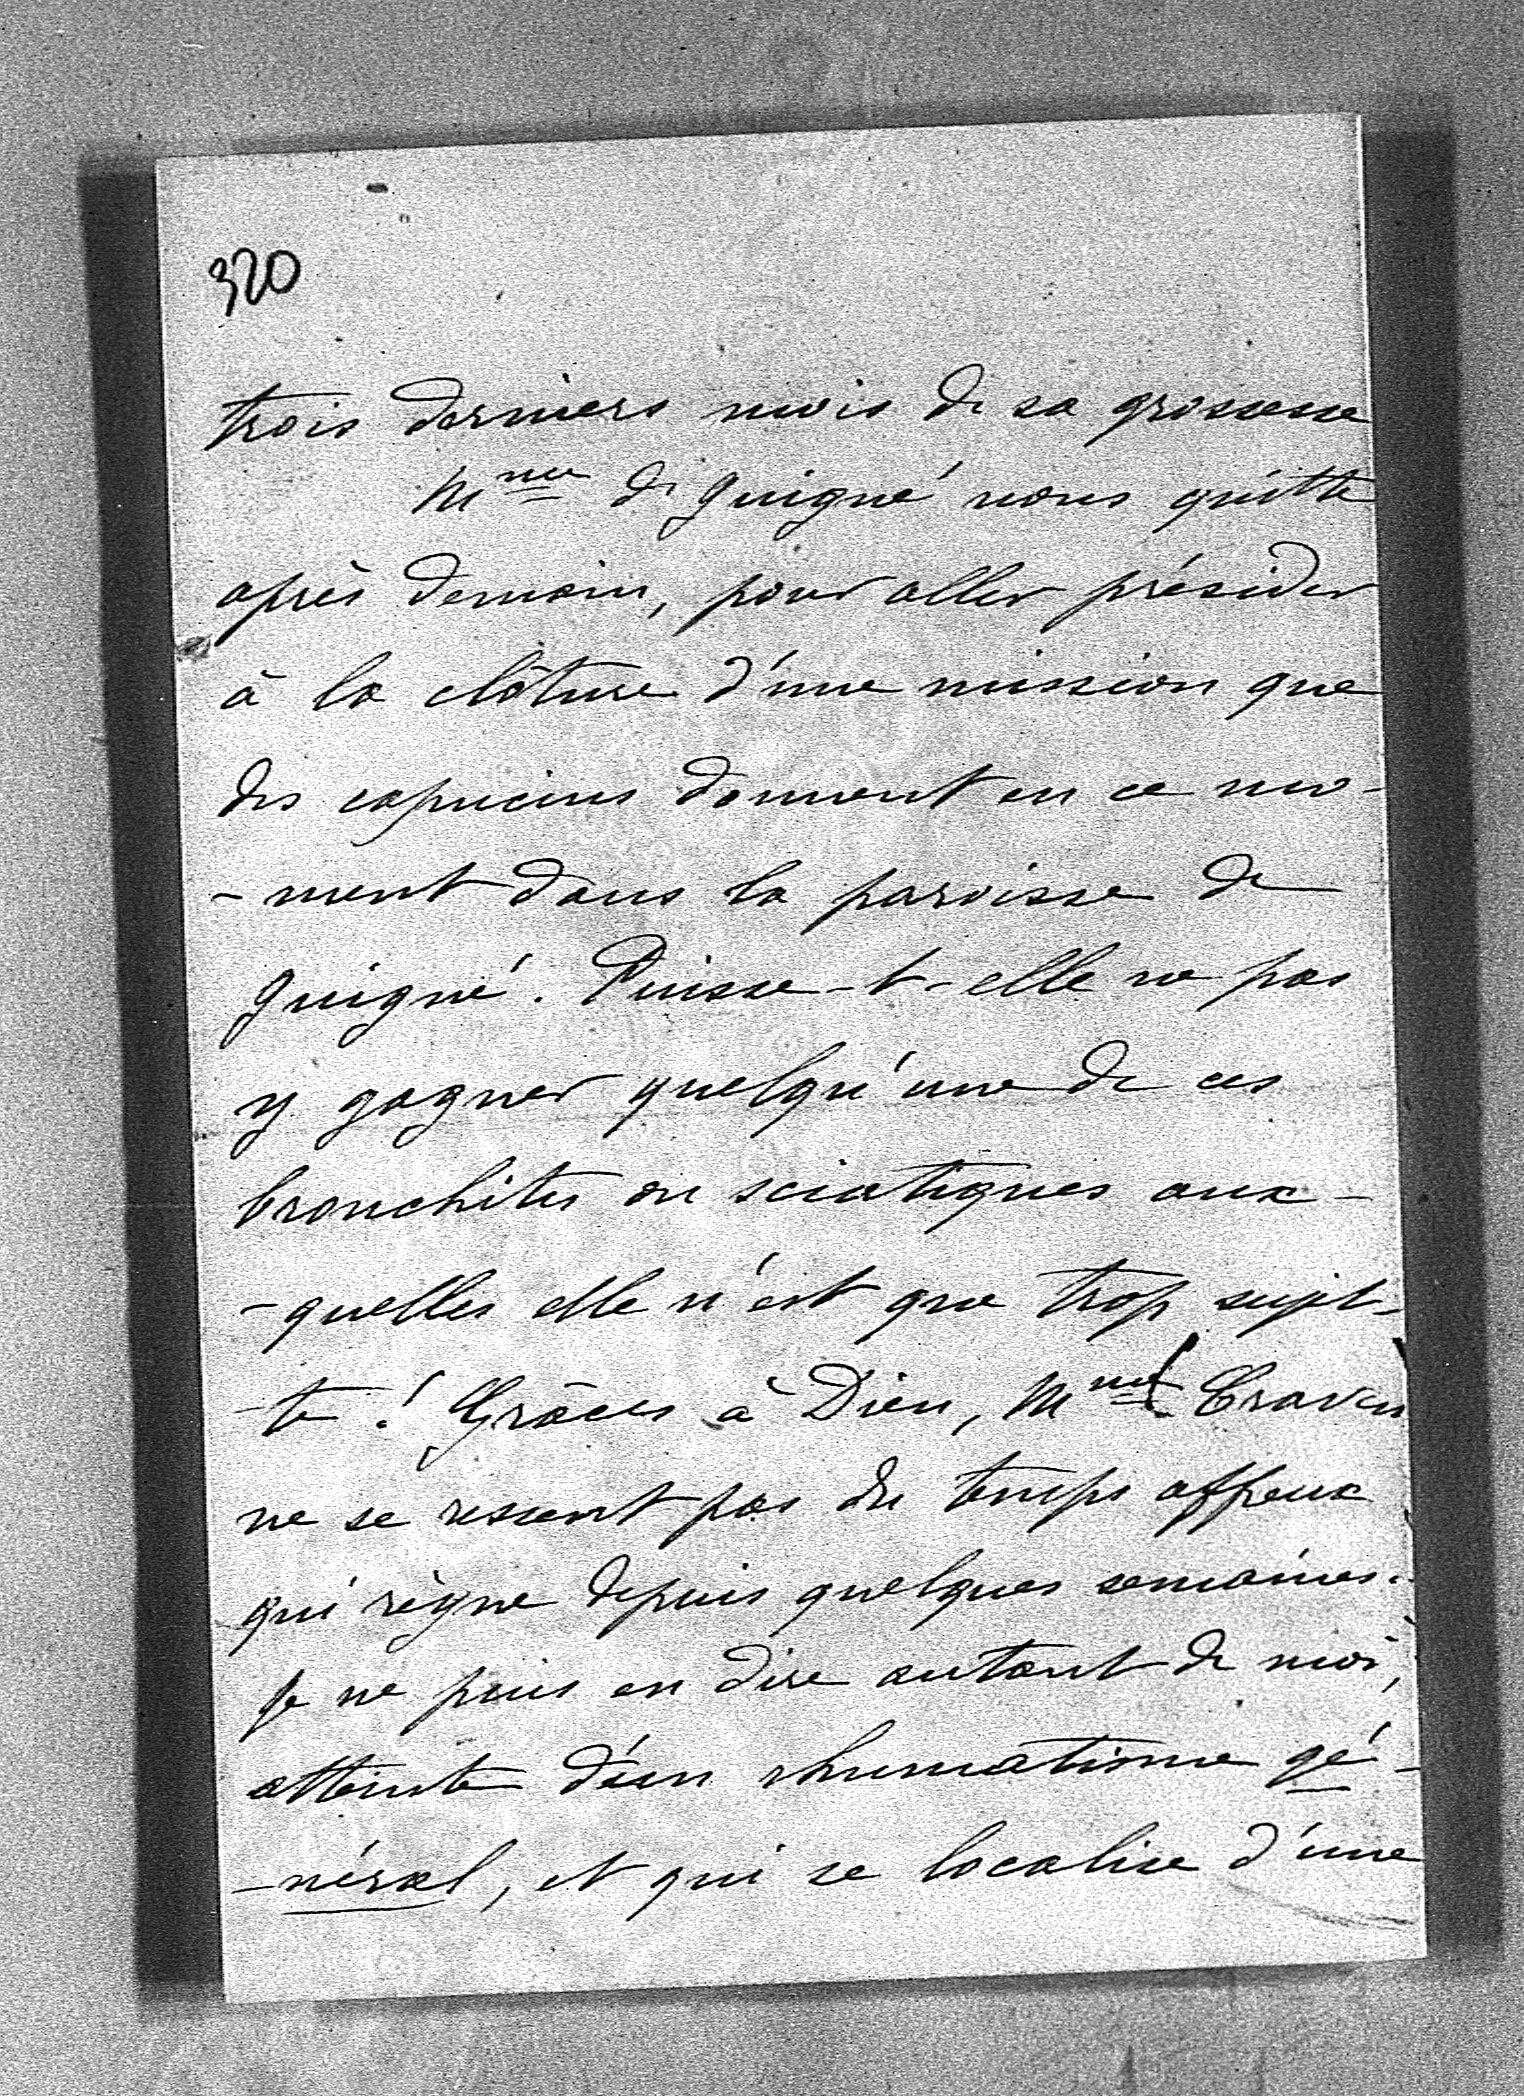 320
trois derniers mois de sa grossesse
Mme de Guigné nous quitte
après demain, pour aller présider
à la clôture d'une mission que
des capucins donnent en ce mo-
-ment dans la paroisse de
Guigné. Puisse-t-elle ne pas
y gagner quelqu'une de ces
bronchites ou sciatiques aux-
-quelles elle n'est que trop sujet-
-te ! Grâces à Dieu, Mme Craven
ne se ressent pas du temps affreux
qui règne depuis quelques semaines.
Je ne puis en dire autant de moi,
atteinte d'un rhumatisme gé-
-néral, et qui se localise d'une